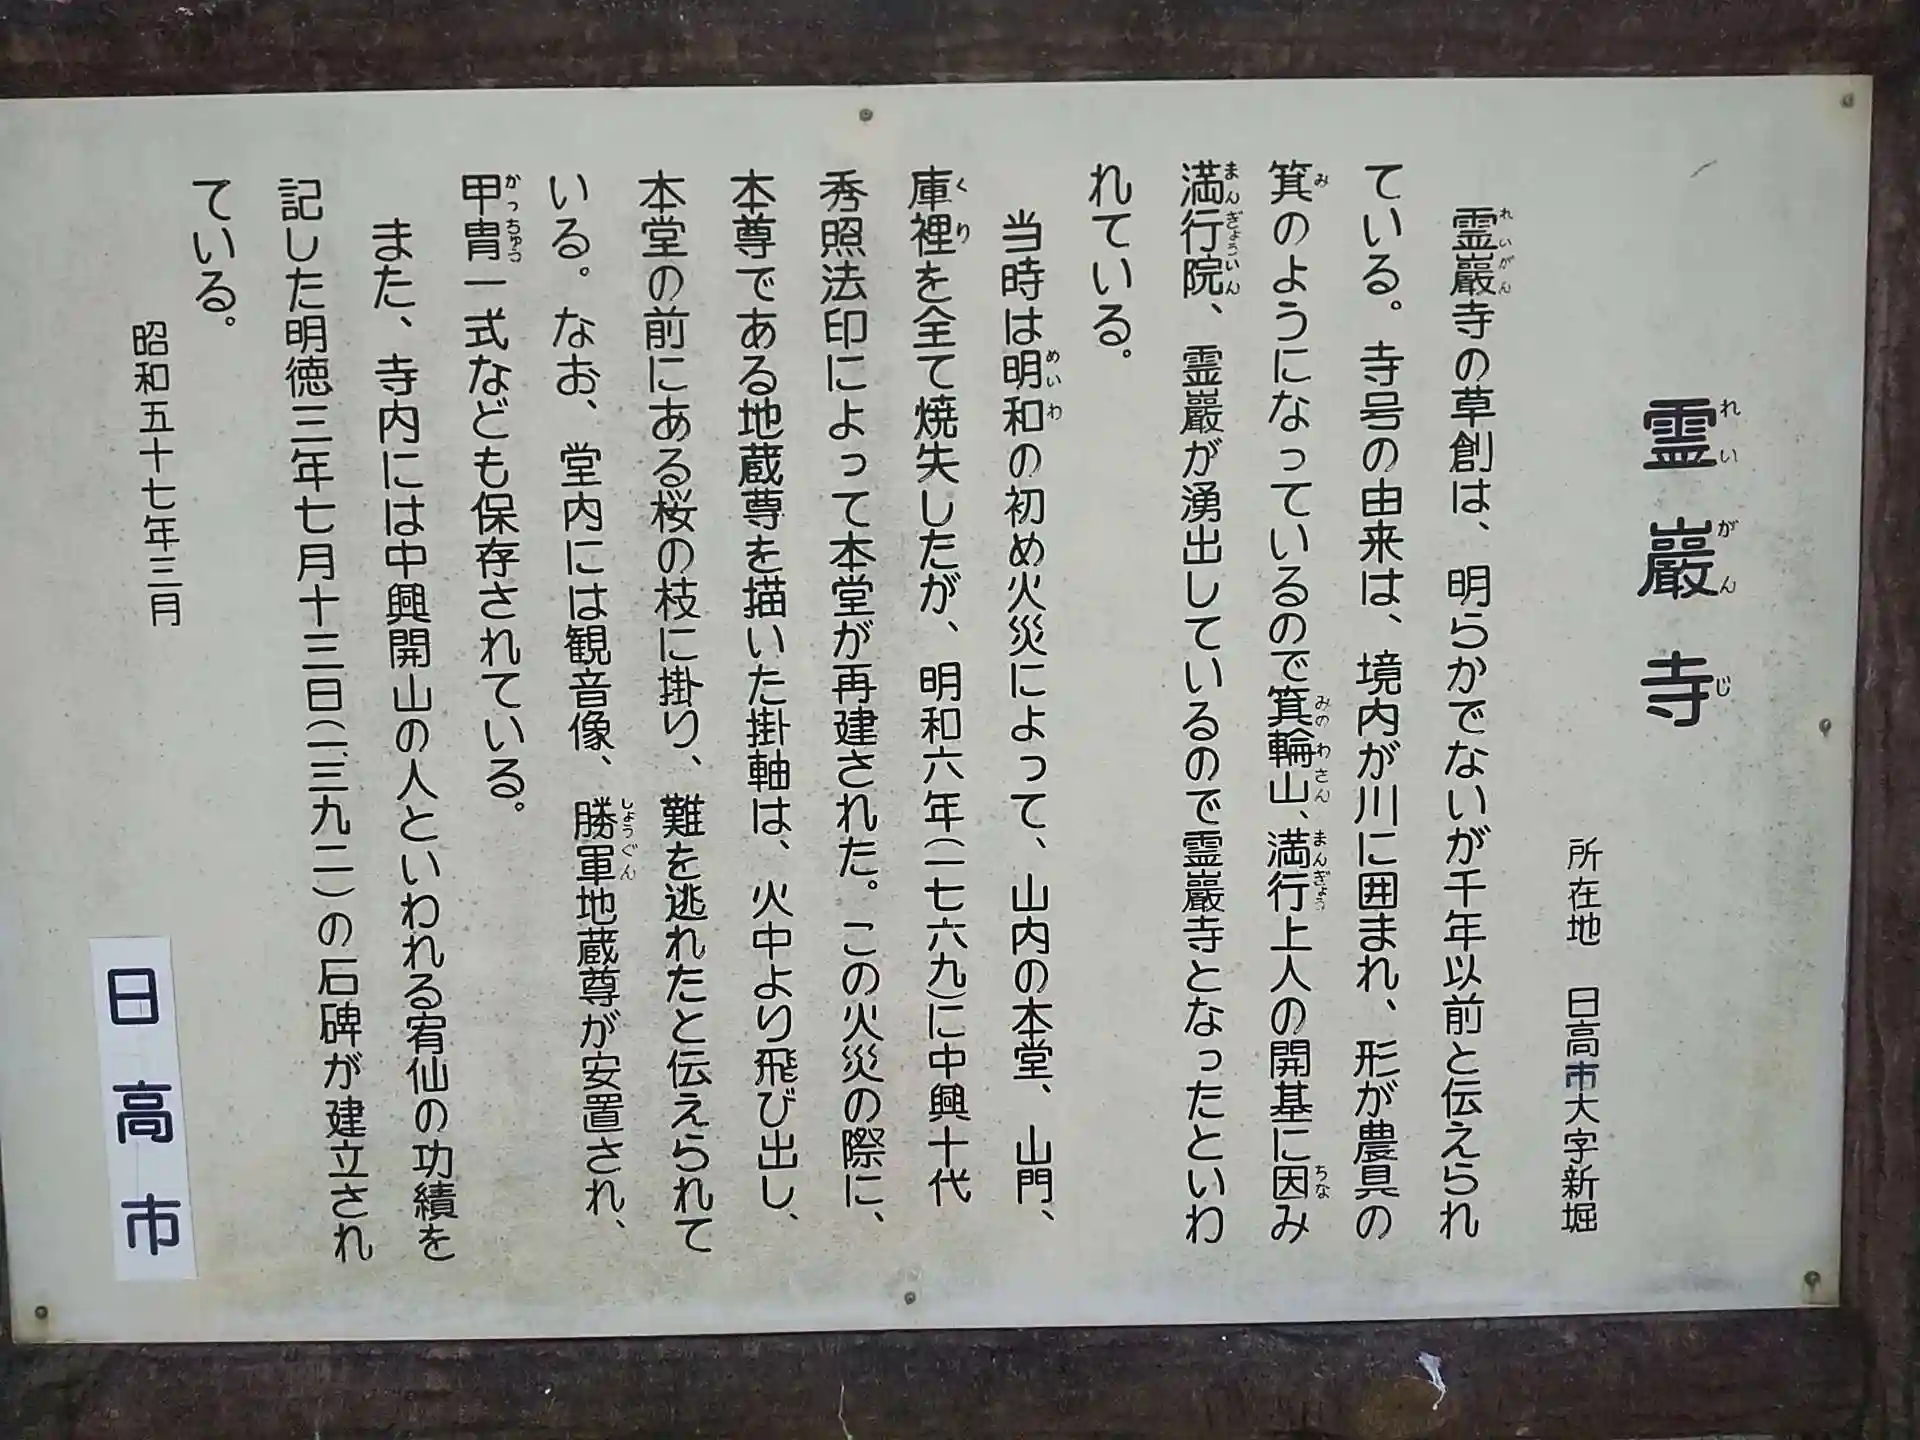 霊巖寺
所在地 日高市大字新堀
霊巖寺の草創は、明らかでないが千年以前と伝えられ
ている。寺号の由来は、境内が川に囲まれ、形が農具の
箕のようになっているので箕輪山、満行上人の開基に因み
満行院、霊巖が湧出しているので霊巖寺となったといわ
れている。
当時は明和の初め火災によって、山内の本堂、山門、
庫裡を全て焼失したが、明和六年(一七六九)に中興十代
秀照法印によって本堂が再建された。この火災の際に、
本尊である地蔵尊を描いた掛軸は、火中より飛び出し、
本堂の前にある桜の枝に掛り、難を逃れたと伝えられて
いる。なお、堂内には観音像、勝軍地蔵尊が安置され、
甲冑一式なども保存されている。
また、寺内には中興開山の人といわれる宥仙の功績を
記した明徳三年七月十三日(一三九二)の石碑が建立され
ている。
昭和五十七年三月
日高市